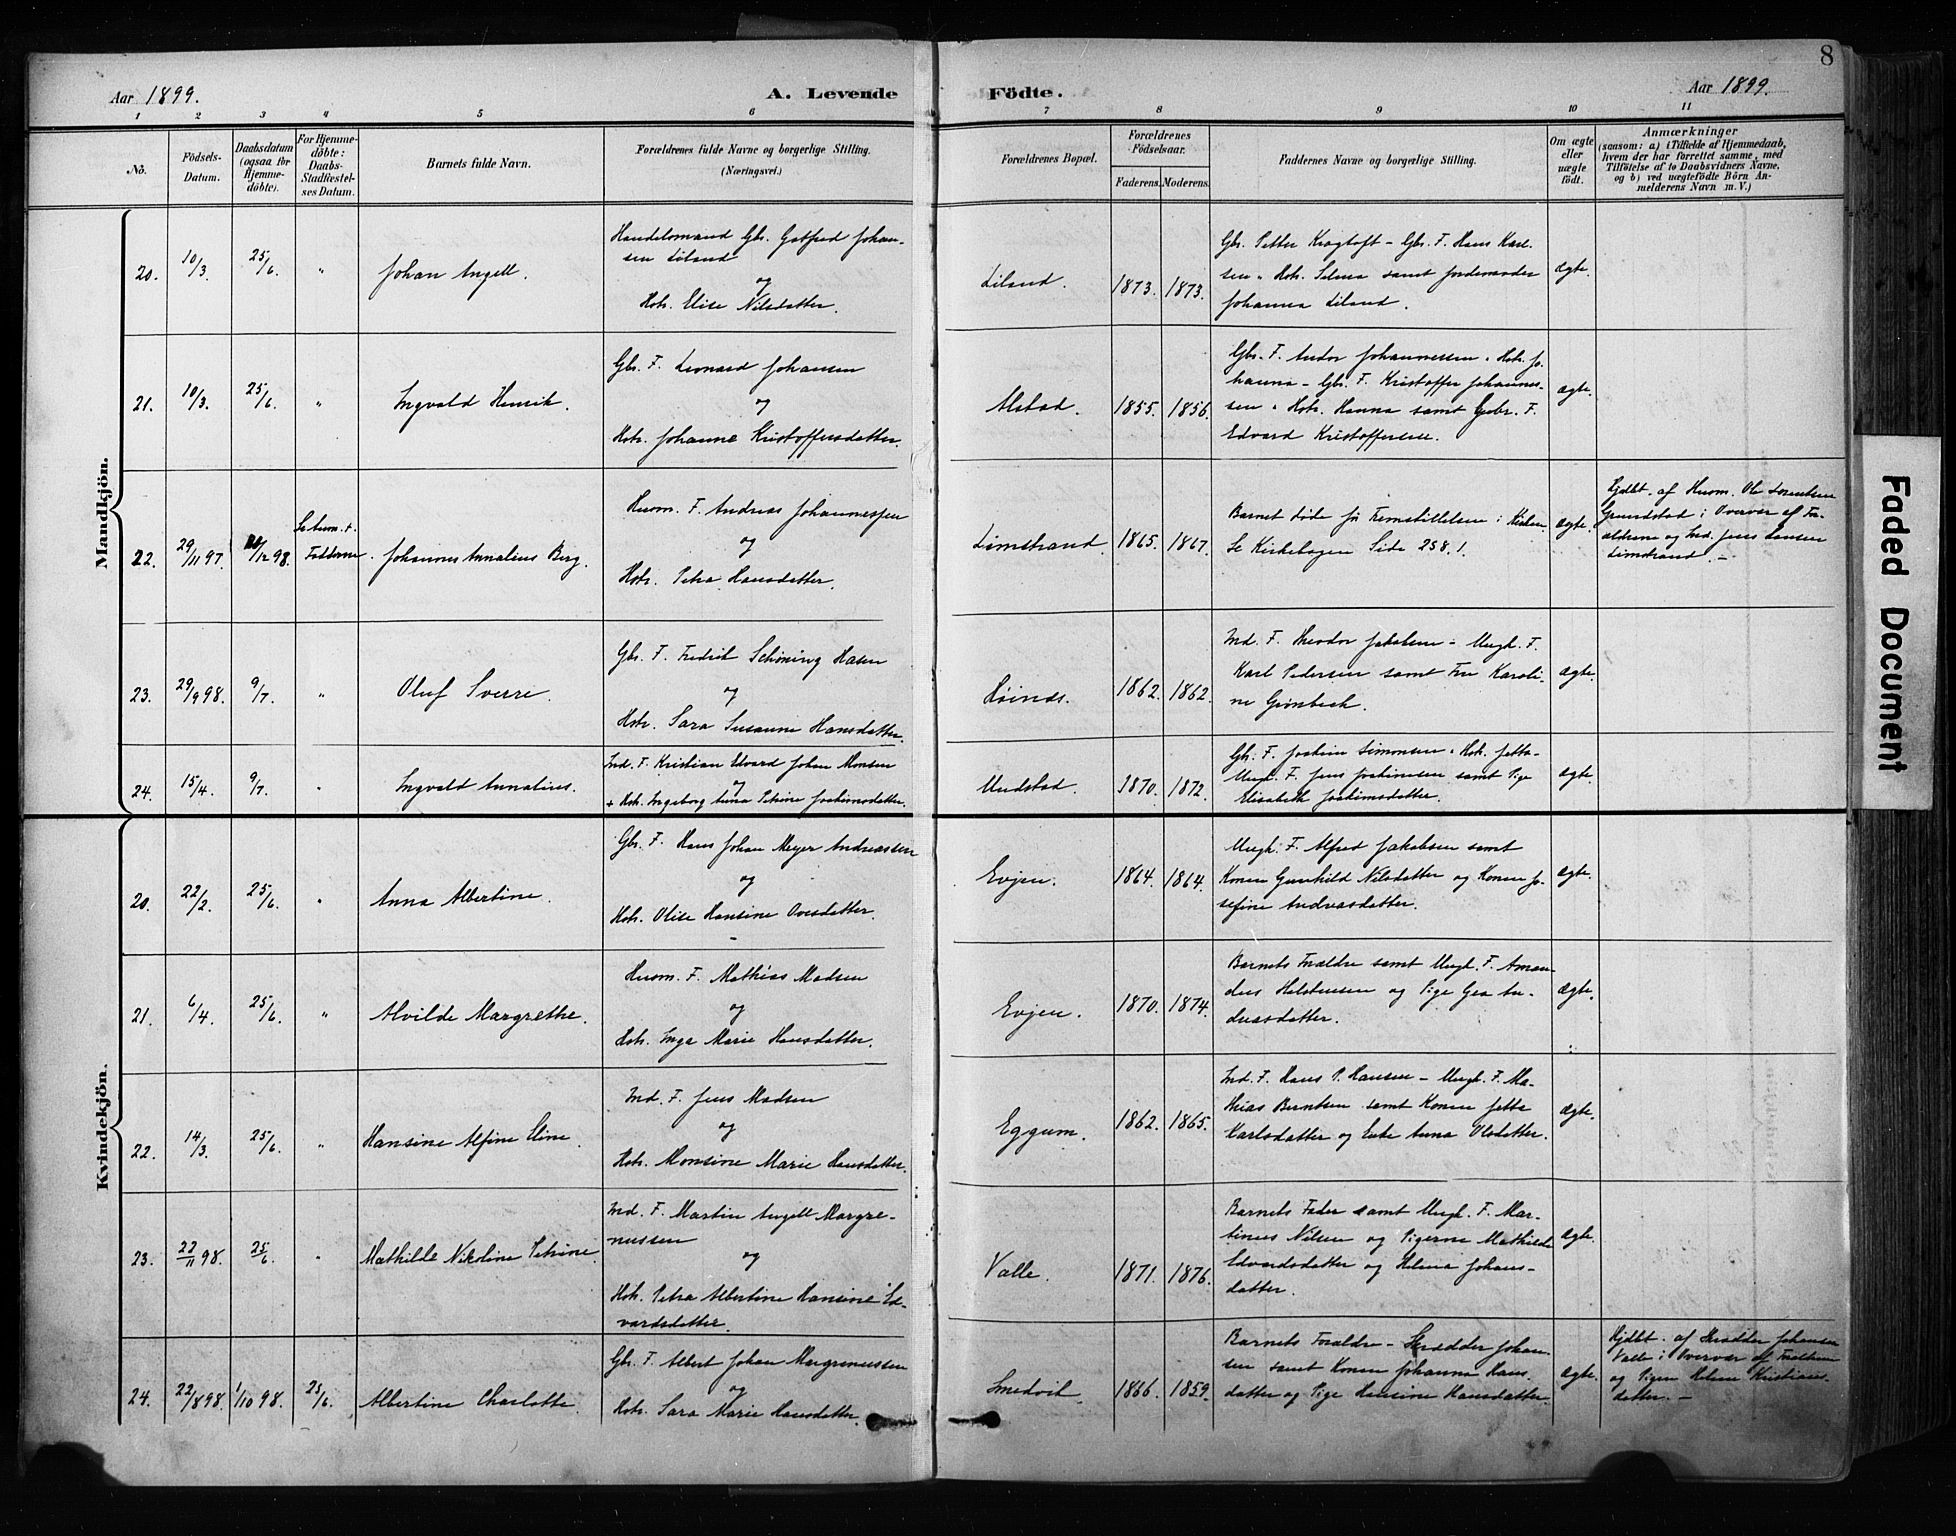 8
Aar 1899.
A. Levende Födte.
Aar 1899.
1 2 3 4 5 6 7 8 9 10 11
No.
Födsels-
Datum.
Daabsdatum
(ogsaa for
Hjemme-
döbte).
For Hjemme-
döbte:
Daabs-
Stadfæstel-
ses Datum.
Barnets fulde Navn.
Forældrenes fulde Navne og borgerlige Stilling.
(Næringsvei.)
Forældrenes Bopæl.
Forældrenes
Födselsaar.
Faderens. Moderens.
Faddernes Navne og borgerlige Stilling.
Om ægte
eller
uægte
födt.
Anmærkninger
(saasom: a) i Tilfælde af Hjemmedaab,
hvem der har forrettet samme, med
Tilföielse af to Daabsvidners Navne,
og b) ved uægtefödte Börn An-
melderens Navn m. V.)
Mandkjön.
20. 10/3. 25/6. " Johan Angell.
Handelsmand Gbr. Gotfred Johan-
sen Liland
og
Hstr. Elise Nilsdatter.
Liland. 1873. 1873.
Gbr. Petter Krogtoft - Gbr. F. Hans Karl-
sen o Hstr. Selma samt Jordemoder
Johanna Liland.
ægte.
21. 10/3. 25/6. " Ingvald Henrik.
Gbr. F. Leonard Johansen
og
Hstr. Johanne Kristoffersdatter.
Alstad. 1855. 1856.
Gbr. F. Andor Johannessen o Hstr. Jo-
hanna - Gbr. F. Kristoffer Johannes-
sen o Hstr. Hanna samt Gbr. F.
Edvard Kristoffersen.
ægte.
22. 29/11 97. /12 98. Fadderne. Johannes Annæus Berg.
Husm. F. Andreas Johannessen
og
Hstr. Petra Hansdatter.
Limstrand. 1865. 1867.
Barnet döde før Fremstillelsen i Kirken.
Se Kirkebogen Side 258.1.
ægte.
Hjdbt. af Husm. Ole Lorentsen
Grundstad i Overvær af For-
ældrene og Ind. Jens Hansen
Limstrand. -
23. 29/9 98. 9/7. " Oluf Sverre.
Gbr. F. Fredrik Schöning Hasen
og
Hstr. Sara Susanne Hansdatter.
1862. 1862.
Ind. F. Theodor Jakobsen - Ungk. F.
Karl Pedersen samt Fru Karoli-
ne Grönbeck.
ægte.
24. 15/4. 9/7. " Ingvald Annæus.
Ind. F. Kristian Edvard Johan Monsen
og
Hstr. Ingeborg Anna Petrine Joakimsdatter.
Undstad. 1870. 1872.
Gbr. F. Joakim Simonsen o Hstr. Jetta-
Ungk. F. Jens Joakimsen samt Pige
Elisabeth Joakimsdatter.
ægte.
Kvindekjön.
20. 22/2. 25/6. " Anna Albertine.
Gbr. F. Hans Johan Meyer Andreassen
og
Hstr. Olise Hansine Ovesdatter.
Evjen. 1864. 1864.
Ungk. F. Alfred Jakobsen samt
Konen Gunhild Nilsdatter og Konen Jo-
sefine Andreasdatter.
ægte.
21. 6/4. 25/6. " Alvilde Margrethe.
Husm. F. Mathias Madsen
og
Hstr. Inga Marie Hansdatter.
Evjen. 1870. 1874.
Barnets Forældre samt Ungk. F. Aman-
dus Halstensen og Pige Gea An-
dreasdatter.
ægte.
22. 14/3. 25/6. " Hansine Alfine Eline.
Ind. F. Jens Madsen
og
Hstr. Monsine Marie Hansdatter.
Eggum. 1862. 1865.
Ind. F. Hans P. Hansen - Ungk. F. Ma-
thias Berntsen samt Konen Jetta
Karlsdatter og Enke Anna Olsdatter.
ægte.
23. 22/11 98. 25/6. " Mathilde Nikoline Petrine.
Ind. F. Martin Angell Margre-
nussen
og
Hstr. Petra Albertine Hansine Ed-
vardsdatter.
Valle. 1871. 1876.
Barnets Fader samt Ungk. F. Mar-
tinus Nilsen og Pigerne Mathilde
Edvardsdatter og Helma Johans-
datter.
ægte.
24. 22/8 98. 1/10 98. 25/6. Albertine Charlotte.
Gbr. F. Albert Johan Margrenussen
og
Hstr. Sara Marie Hansdatter.
Smedvik. 1866. 1859.
Barnets Forældre - Skrædder Johan-
sen samt Konen Johanna Hans-
datter og Pige Hansine Hansdatter.
ægte.
Hjdbt. af Skrædder Johansen
Valle i Overvær af Forældrene
og Pigen Helene Kristians-
datter. -
Faded Document